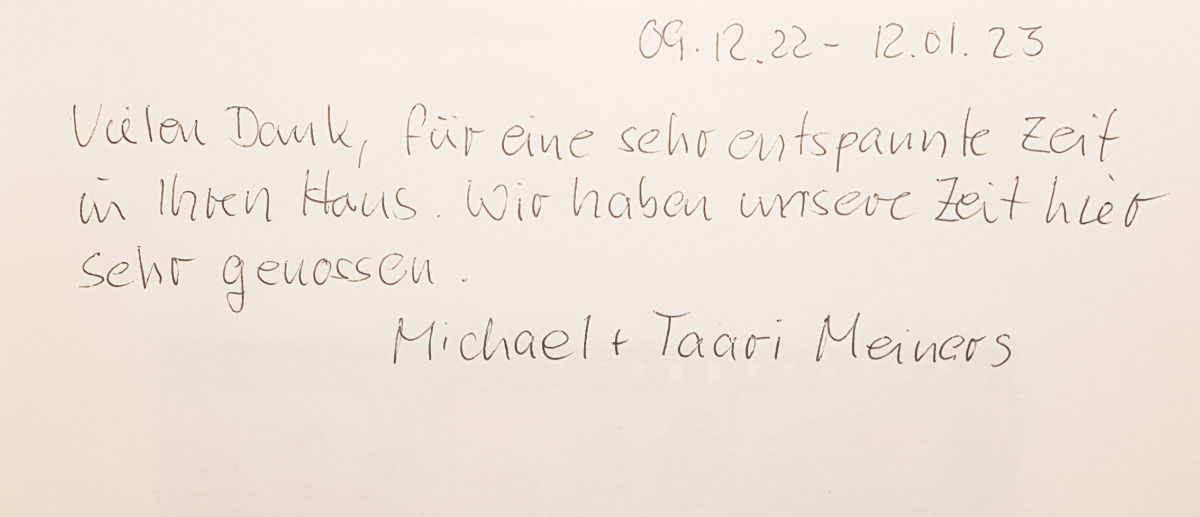 09.12.22 - 12.01.23
Vielen Dank, für eine sehr entspannte Zeit
in Ihren Haus. Wir haben unsere Zeit hier
sehr genossen.
Michael + Taari Meiners